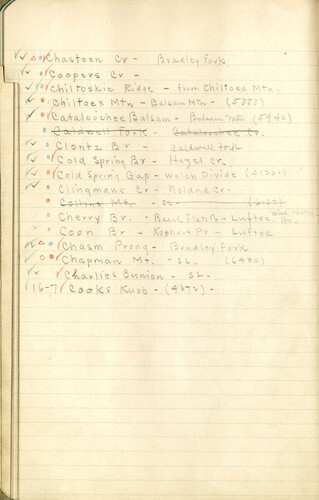 Chasteen Cr - Bradley Fork
Coopers Cr -
Chiltoskie Ridge - from Chiltoes Mtn.
Chiltoes Mtn - Balsam Mtn - (5888)
Cataloochee Balsam - Balsam Mtn (5940)
Caldwell Fork - Cataloochee Cr.
Clontz Br - Caldwell Fork
Cold Spring Br - Hazel Cr.
Cold Spring Gap - Welch Divide
Clingmans Cr - Noland Cr -
Collins Mt. - SL -
Cherry Br. - Flats Br - Luftee
Coon Br - Kephart Pr - Luftee
Chasm Prong - Bradley Fork
Chapman Mt. - SL - (6430)
Charlies Bunion - SL -
(16-7) Cooks Knob - (4372) -